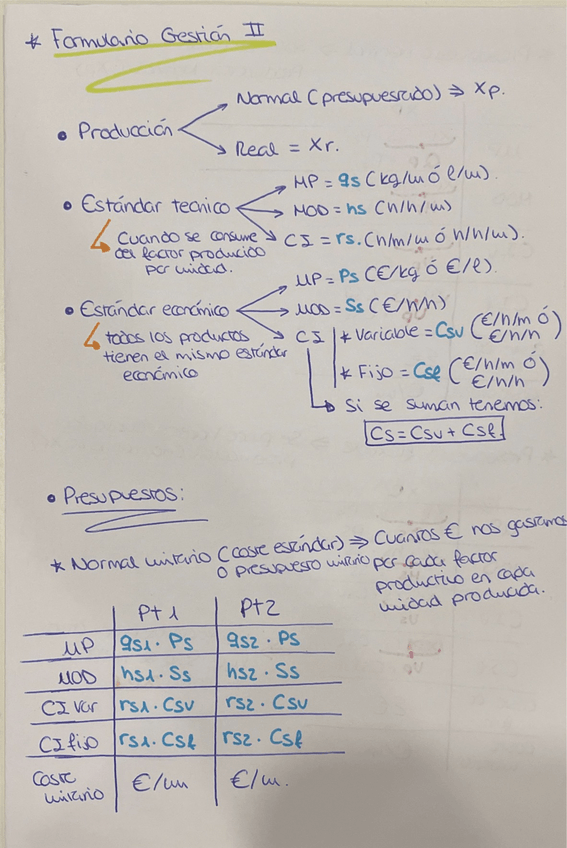 * Formulario Gestión II
Normal (presupuestado) ⇒ Xp.
• Producción
Real = Xr.
MP = qs (kg/m ó l/m).
• Estándar tecnico
MOD = hs (h/h/m)
Cuando se consume
CI = rs. (h/m/m ó h/h/m).
del factor producido
por unidad.
MP = Ps (€/kg ó €/l).
• Estándar económico
MOD = Ss (€/h/h)
todos los productos
CI
* Variable = Csv (€/h/m ó
€/h/h)
tienen el mismo estándar
económico
* Fijo = Csf (€/h/m ó
€/h/h)
Si se suman tenemos:
Cs = Csv + Csf.
• Presupuestos:
* Normal unitario (coste estándar) ⇒ Cuantos € nos gastamos
o presupuesto unitario por cada factor
productivo en cada
unidad producida.
Pt 1 Pt 2
MP qs1 · Ps qs2 · Ps
MOD hs1 · Ss hs2 · Ss
CI var rs1 · Csv rs2 · Csv
CI fijo rs1 · Csf rs2 · Csf
Coste
unitario €/un €/u.